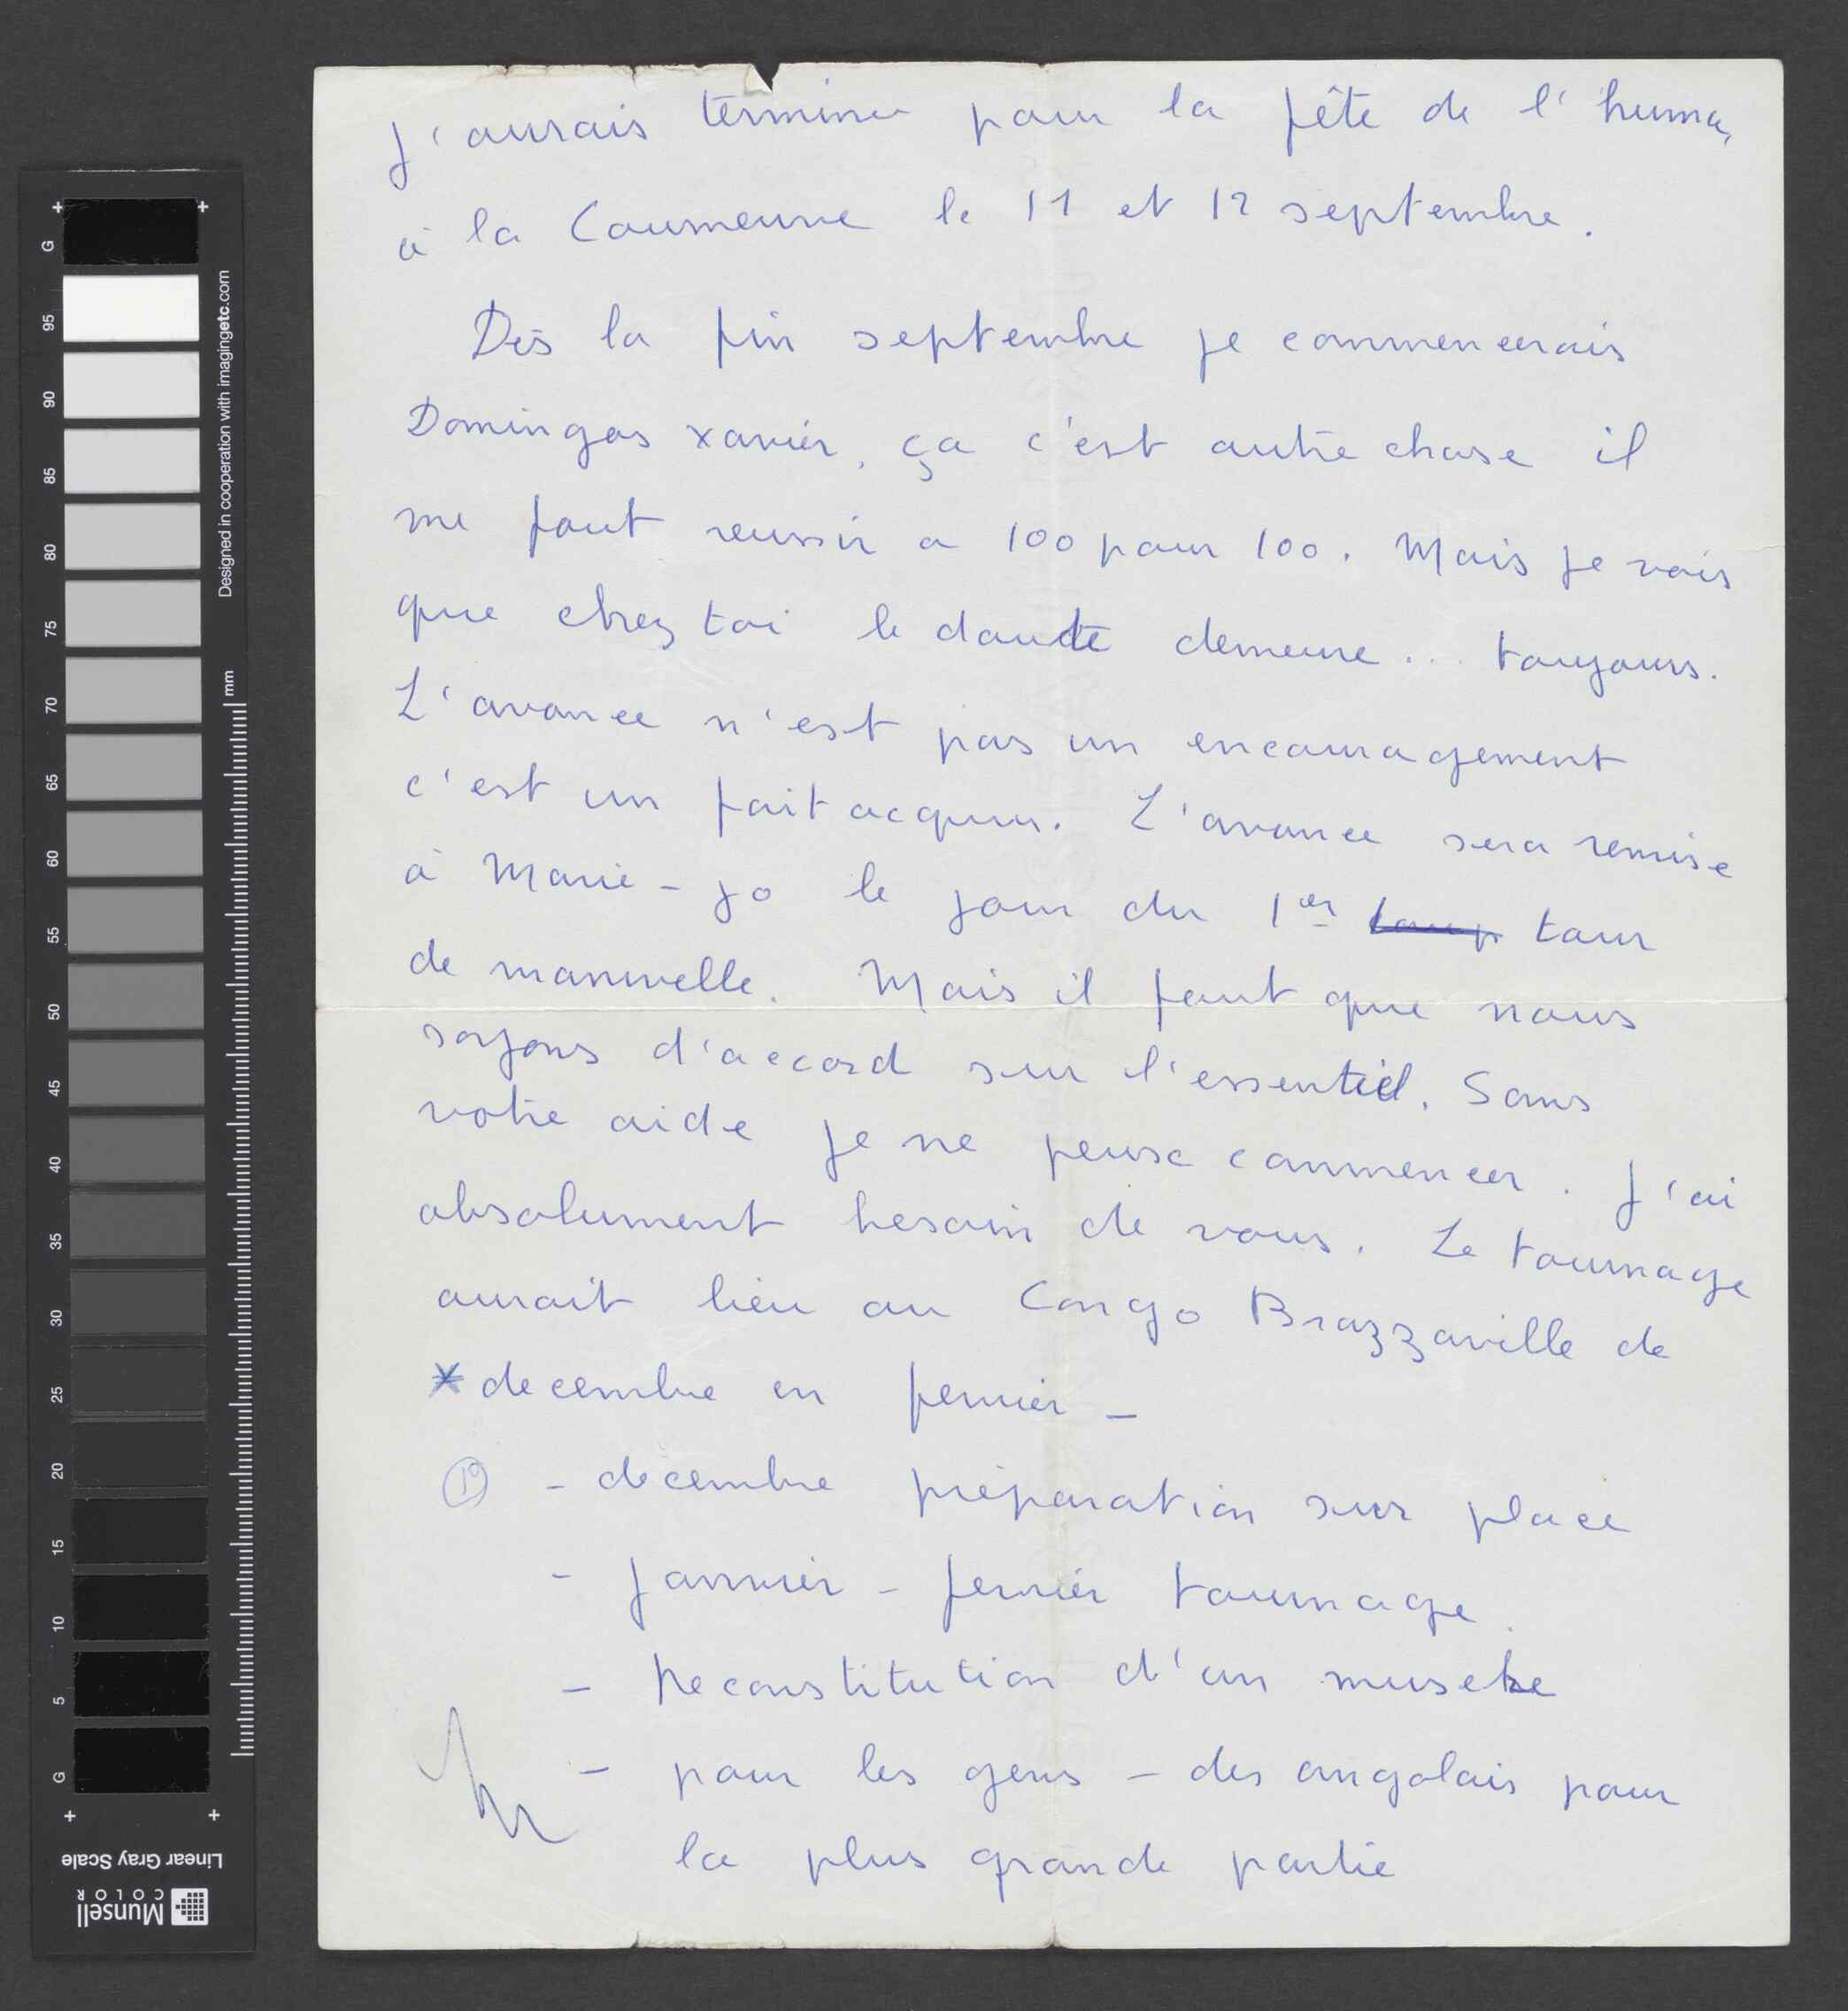 j'aurais terminer pour la fête de l'huma,
à la Courneuve le 11 et 12 septembre.
Dès la fin septembre je commencerais
Domingos xavier, ça c'est autre chose il
me faut reussir a 100 pour 100. Mais je vois
que chez toi le doute demeure... toujours.
L'avance n'est pas un encouragement
c'est un fait acquis. L'avance sera remise
à Marie-jo le jour du 1er tour
de manivelle. Mais il faut que nous
soyons d'accord sur l'essentiel. Sans
votre aide je ne peux commencer. J'ai
absolument besoin de vous. Le tournage
aurait lieu au Congo Brazzaville de
* decembre en fevrier -
1º - decembre préparation sur place
- janvier - fevrier tournage
- Reconstitution d'un museke
- pour les gens - des angolais pour
la plus grande partie
G 95 90 85 80 75 70 65 60 55 50 45 40 35 30 25 20 15 10 5 G
Designed in cooperation with imagingetc.com
mm
Linear Gray Scale
Munsell
COLOR